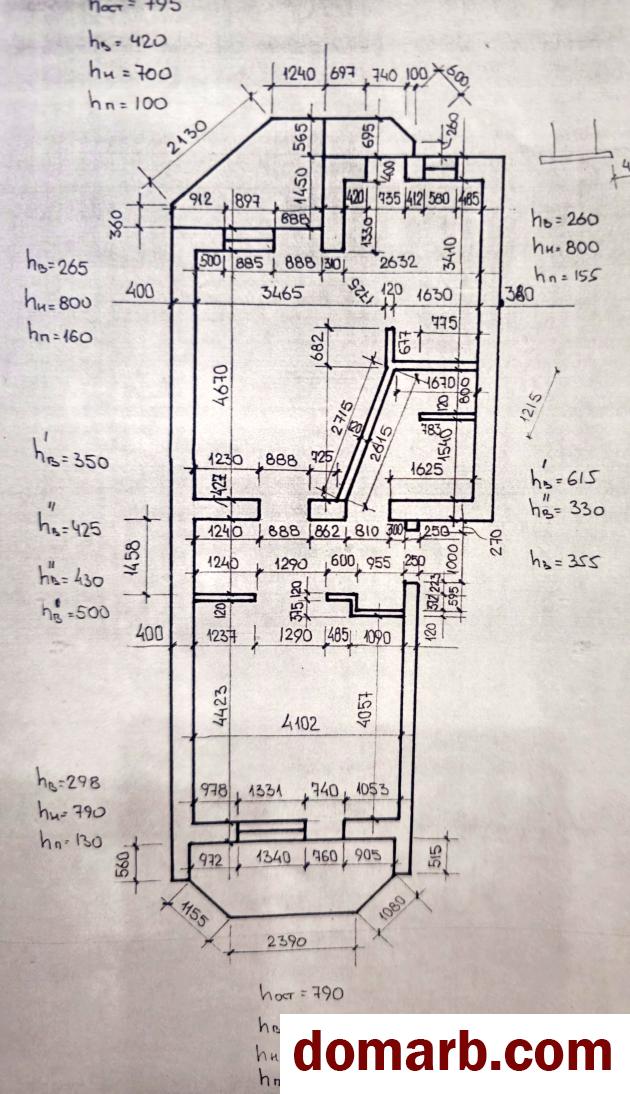 hост = 795
hв = 420
hн = 700
hп = 100
1240 697 740 100 600
2130
565 695 260
1450 400
912 897 420 735 412 580 485
360 888 1330
500 885 888 310 2632 3410
hв = 260
hн = 800
hп = 155
hв = 265
hн = 800
hп = 160
400 3465 1725 120 1630 380
775
682 677
4670 1670 800
2715 120 2615 120 783 1540
1215
1230 888 725 1625
427
h'в = 350
h''в = 425
h''в = 430
hв = 500
h'в = 615
h''в = 330
hв = 355
1240 888 862 810 300 250 270
1458
1240 1290 600 955 250 1000
120 375 120 223 372 595 120
400 1237 1290 485 1090
4423 4102 4057
978 1331 740 1053
hв = 298
hн = 790
hп = 130
560 972 1340 760 905 515
1155 1080
2390
hост = 790
hв
hн
hп
domarb.com